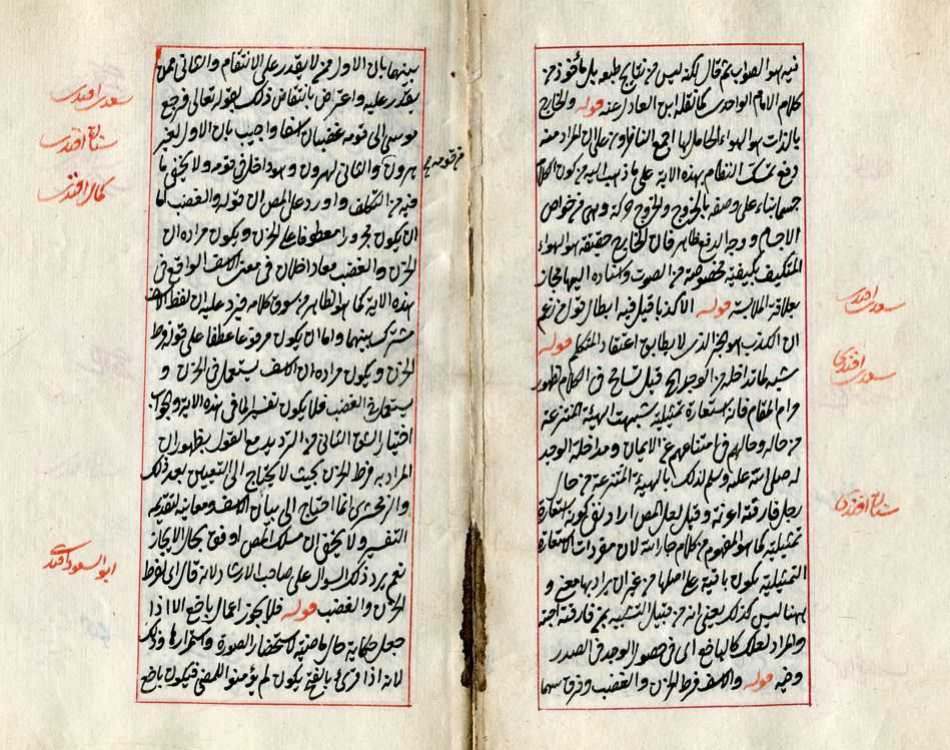 فيه هو الصواب ثم قال لكنه ليس من نتايج طبعه بل مأخوذ من
كلام الامام الواحدى كما نقله ابن العادل عنه قوله والخارج
بالذات هو الهواء الحامل لها
دفع تمسك النظام بهذه الاية على ما ذهب اليه من كون الكلام
جسما بناء على وصفه بالخروج والخروج حركة وهى من خواص
الاجسام ووجه الدفع ظاهر فان الخارج حقيقة هو الهواء
المتكيف بكيفية مخصوصة من الصوت واسناده اليها مجاز
بعلاقة الملابسة قوله الا كذبا قيل فيه ابطال قول من زعم
ان الكذب هو الخبر الذى لا يطابق اعتقاد المتكلم قوله
شبهه لما تداخله من الوجد الخ قيل تسامح فى الكلام لظهور
مرام المقام فانه استعارة تمثيلية شبهت الهيئة المنتزعة
من حاله وحالهم فى امتناعهم عن الايمان ومداخلة الوجد
له صلى الله عليه وسلم لذلك بالهيئة المنتزعة من حال
رجل فارقته اعزته وقيل لعل المص اراد نفى كونه استعارة
تمثيلية كما هو المفهوم من كلام جار الله لان مفردات الاستعارة
التمثيلية تكون باقية على اصلها من غير ان يراد بها معنى و
ههنا ليس كذلك يعنى انه من قبيل التشبيه بمن فارقته احبته
والمراد لعلك كالباخع اى فى حصول الوجد فى الصدر
وفيه قوله والاسف فرط الحزن والغضب وفرق
سعدى افندى
سعدى افندى
سنان افندى
بينهما بان الاول من لا يقدر على الانتقام والثانى ممن
يقدر عليه واعترض بانتقاض ذلك بقوله تعالى فرجع
موسى الى قومه غضبان اسفا واجيب بان الاول لغير
هرون والثانى لهرون وهو داخل فى قومه ولا يخفى ما
من قومه
فيه من التكلف واورد على المص ان قوله والغضب اما
ان يكون مجرورا معطوفا على الحزن ويكون مراده ان
الحزن والغضب معا داخلان فى معنى الاسف الواقع فى
هذه الاية كما هو الظاهر من سوق كلامه فيرد عليه ان لفظ الاسف
مشترك بينهما واما ان يكون مرفوعا عطفا على قوله فرط
الحزن ويكون مراده ان الاسف يستعمل فى الحزن و
يستعمل فى الغضب فلا يكون تفسيرا لما فى هذه الاية والجواب
اختيار الشق الثانى من الترديد مع القول بظهور ان
المراد به فرط الحزن بحيث لا يحتاج الى التعيين بعد ذلك
والزمخشرى انما احتاج الى بيان الاسف ومعانيه لتقدمه
التفسير ولا يخفى ان مسلك المص اوفق بحال الايجاز
نعم يرد ذلك السوال على صاحب الارشاد لانه قال اى لفرط
الحزن والغضب قوله فلا يجوز اعمال باخع الا اذا
جعل حكاية حال ماضية لاستحضار الصورة واستمرارها وذلك
لانه اذا قرئ بالفتح يكون لم يؤمنوا للمضى فيكون باخع
سعدى افندى
سنان افندى
كمال افندى
ابو السعود افندى